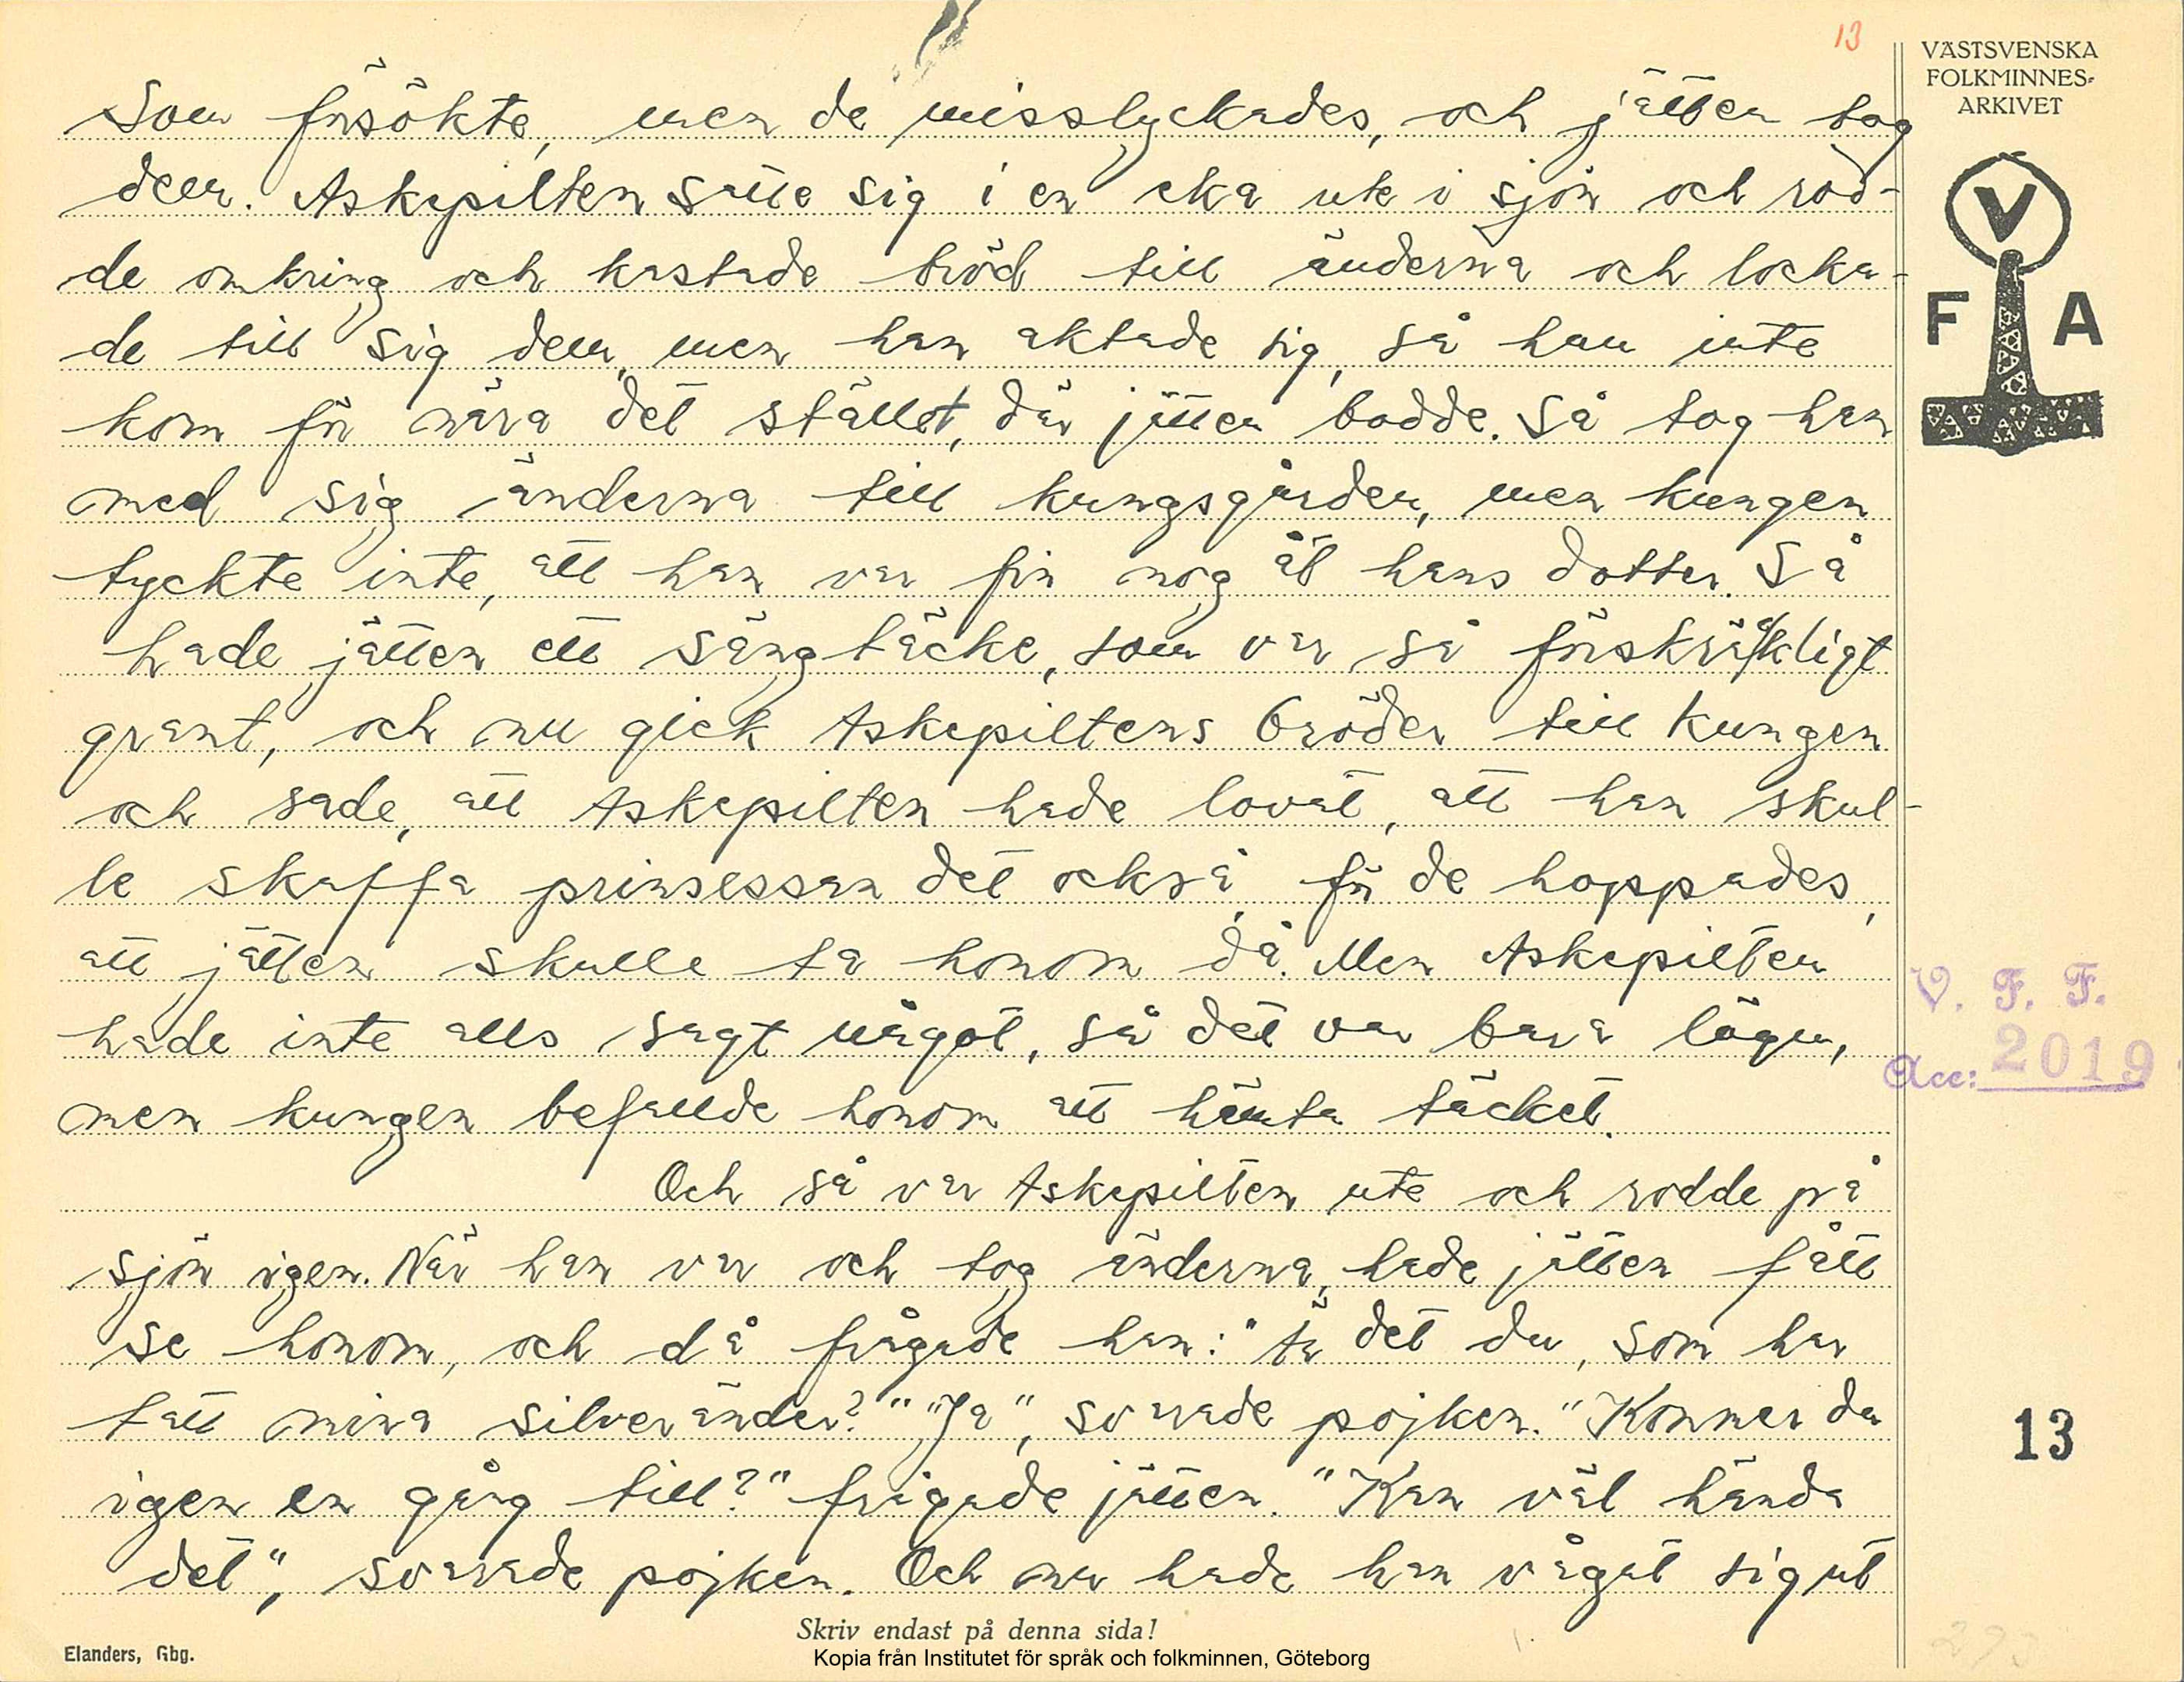 13
VÄSTSVENSKA
FOLKMINNES-
ARKIVET
V
F A
som försökte, men de misslyckades, och jätten tog
dem. Askepilten satte sig i en eka ute i sjön och rod-
de omkring och kastade bröd till änderna och locka-
de till sig dem, men han aktade sig, så han inte
kom för nära det stället, där jätten bodde. Så tog han
med sig änderna till kungsgården, men kungen
tyckte inte, att han var fin nog åt hans dotter. Så
hade jätten ett sängtäcke, som var så förskräckligt
grant, och nu gick Askepiltens bröder till kungen
och sade, att Askepilten hade lovat, att han skul-
le skaffa prinsessan det också, för de hoppades,
att jätten skulle ta honom då. Men Askepilten
hade inte alls sagt något, så det var bara lögn,
men kungen befallde honom att hämta täcket.
Och så var Askepilten ute och rodde på
sjön igen. När han var och tog änderna, hade jätten fått
se honom, och då frågade han: "Är det du, som har
tatt mina silveränder?" "Ja", svarade pojken. "Kommer du
igen en gång till?" frågade jätten. "Kan väl hända
det", svarade pojken. Och nu hade han vågat sig ut
V. F. F.
Acc: 2019
13
Skriv endast på denna sida!
Elanders, Gbg.
Kopia från Institutet för språk och folkminnen, Göteborg